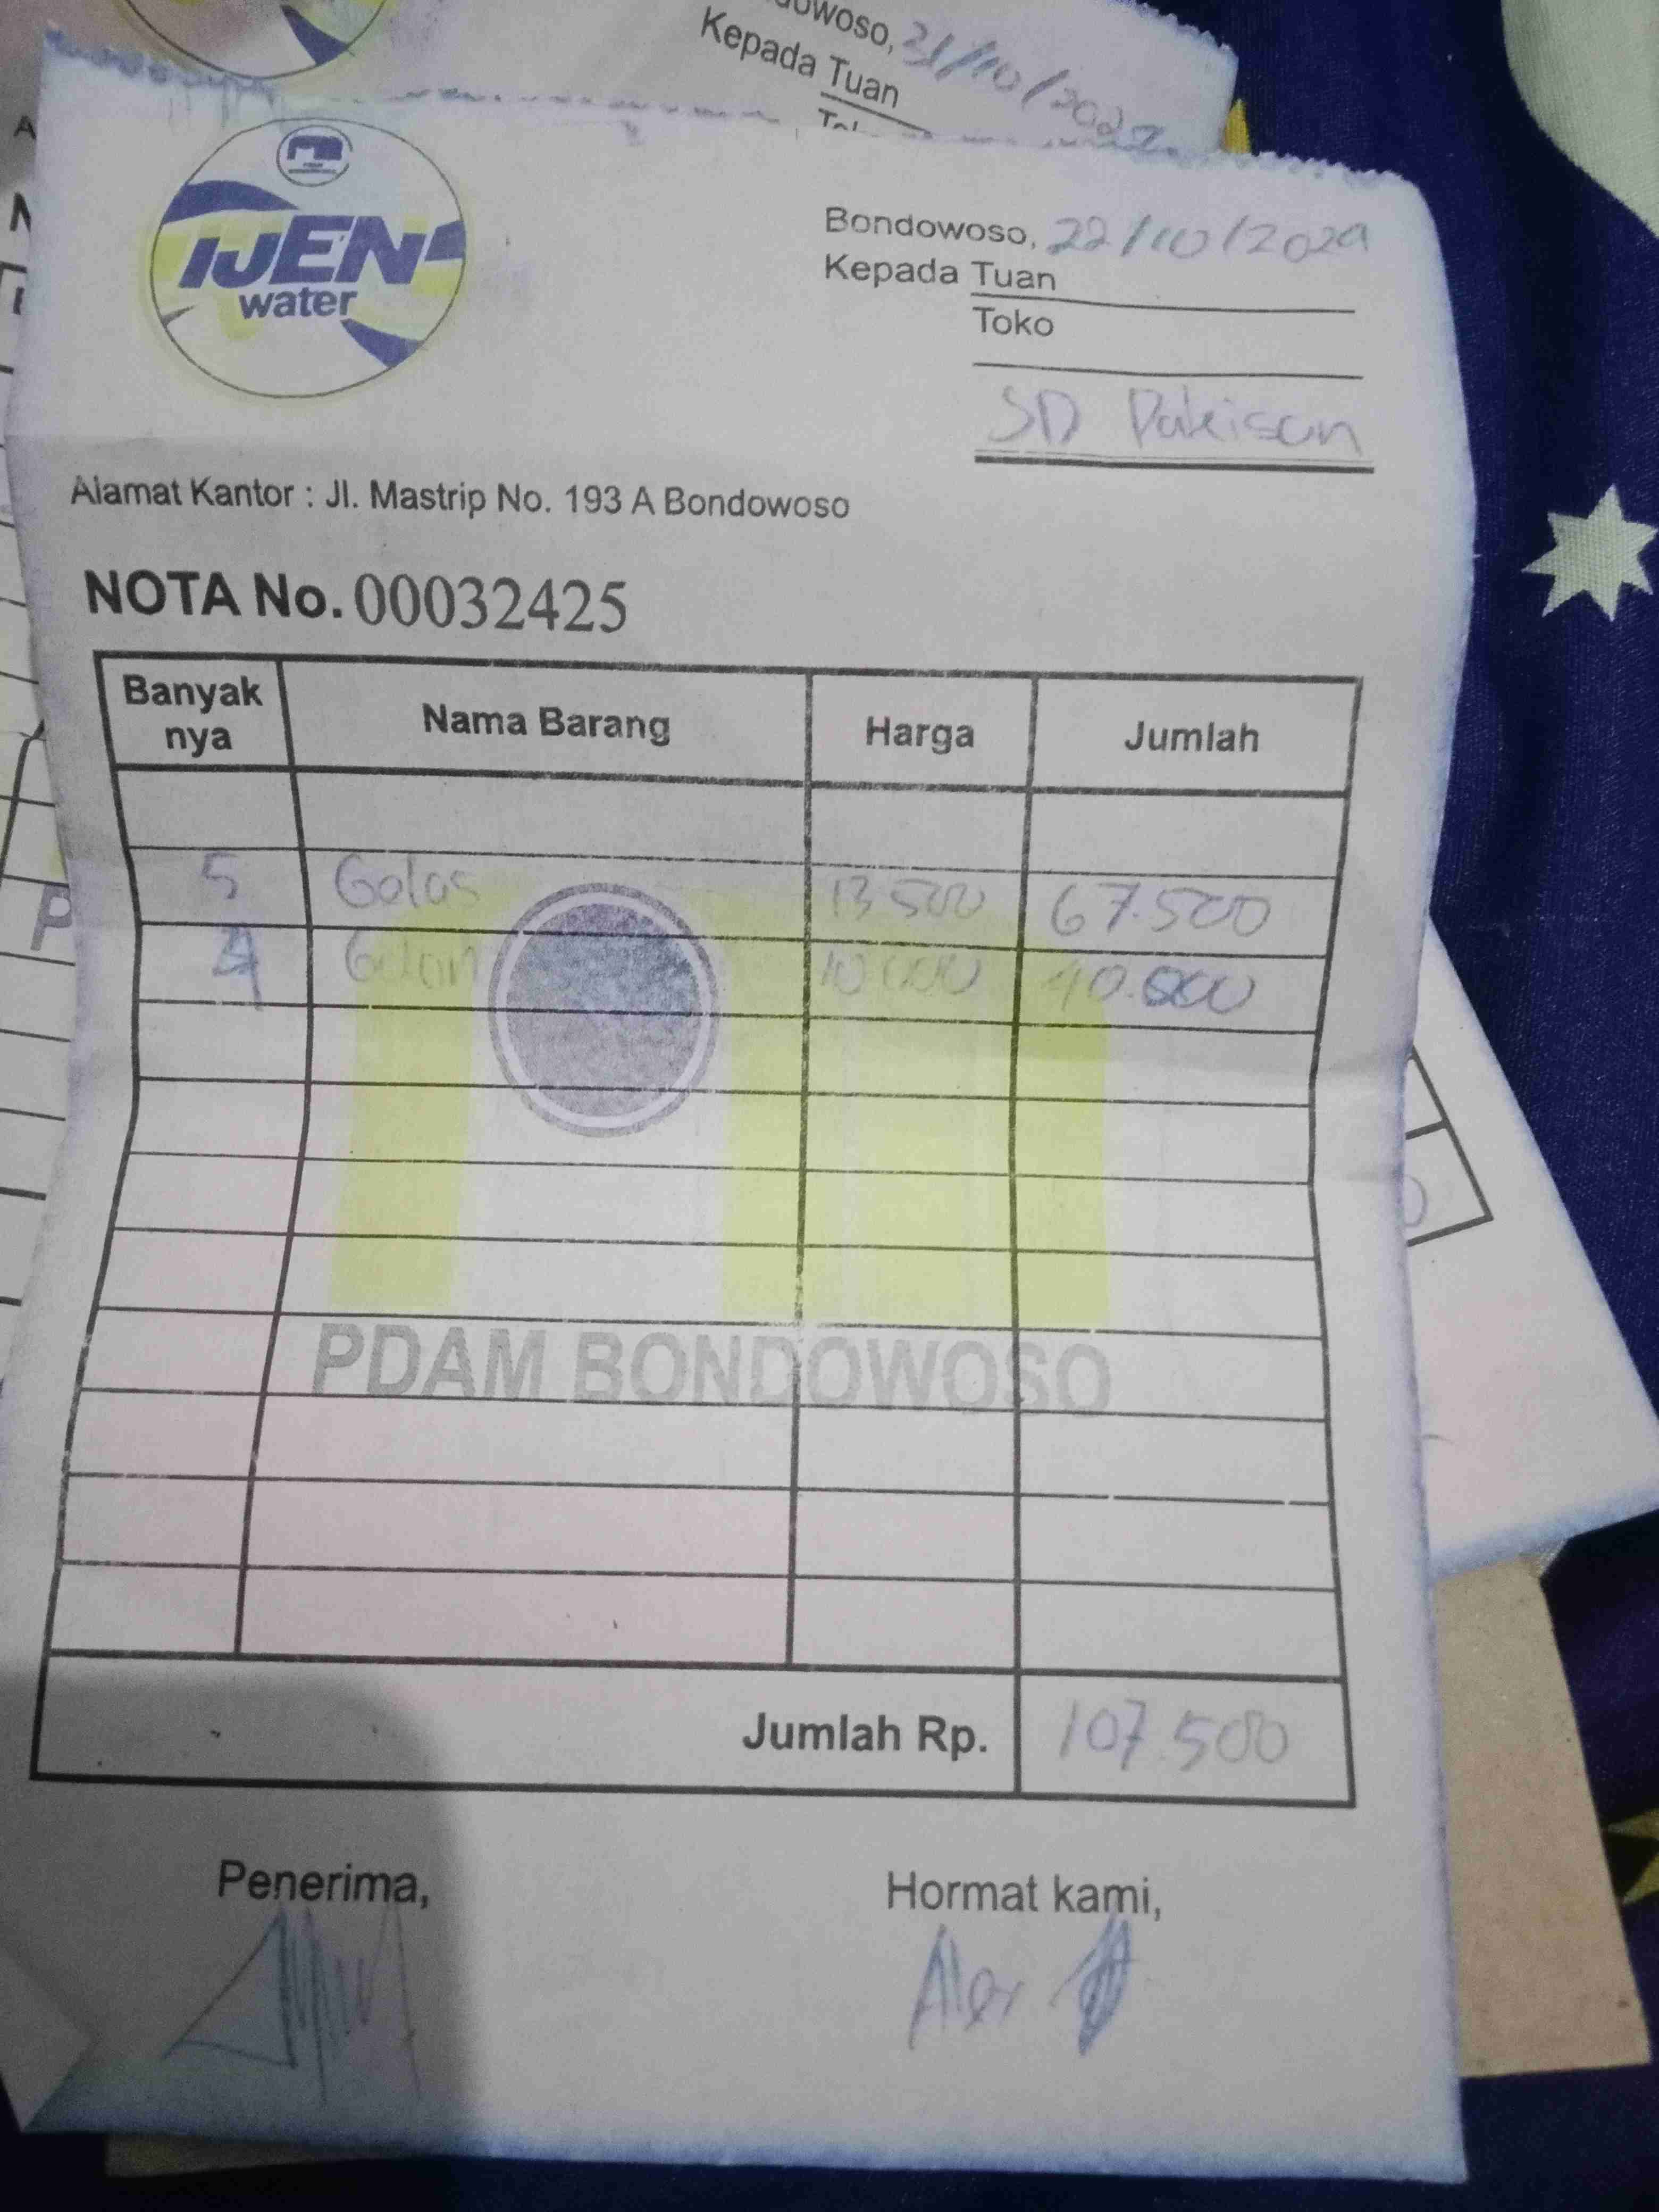 Kepada Tuan
IJEN
water
Bondowoso, 22/10/2024
Kepada Tuan
Toko
SD Pakisan
Alamat Kantor : Jl. Mastrip No. 193 A Bondowoso
NOTA No. 00032425
Banyak nya Nama Barang Harga Jumlah
5 Gelas 13 500 67.500
4 Galon 10 000 40.000
PDAM BONDOWOSO
Jumlah Rp. 107.500
Penerima, Hormat kami,